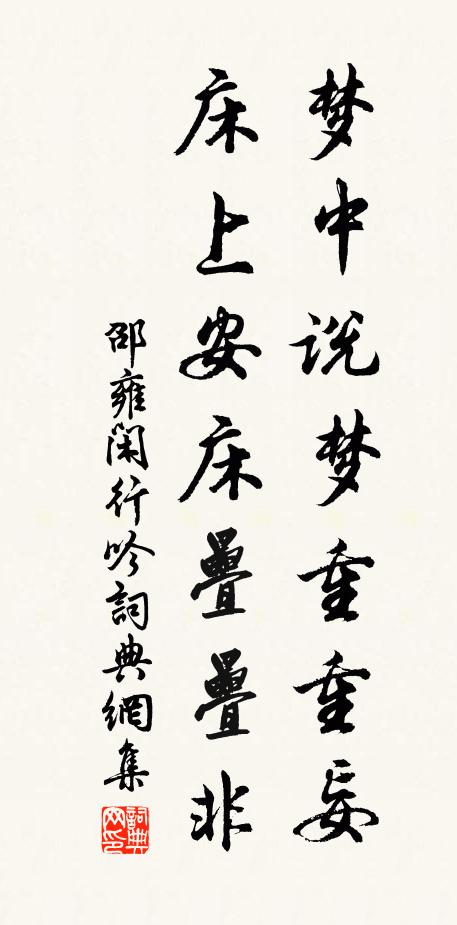 梦中说梦重重妄
床上安床叠叠非
邵雍闲行吟词典网集
词典网印